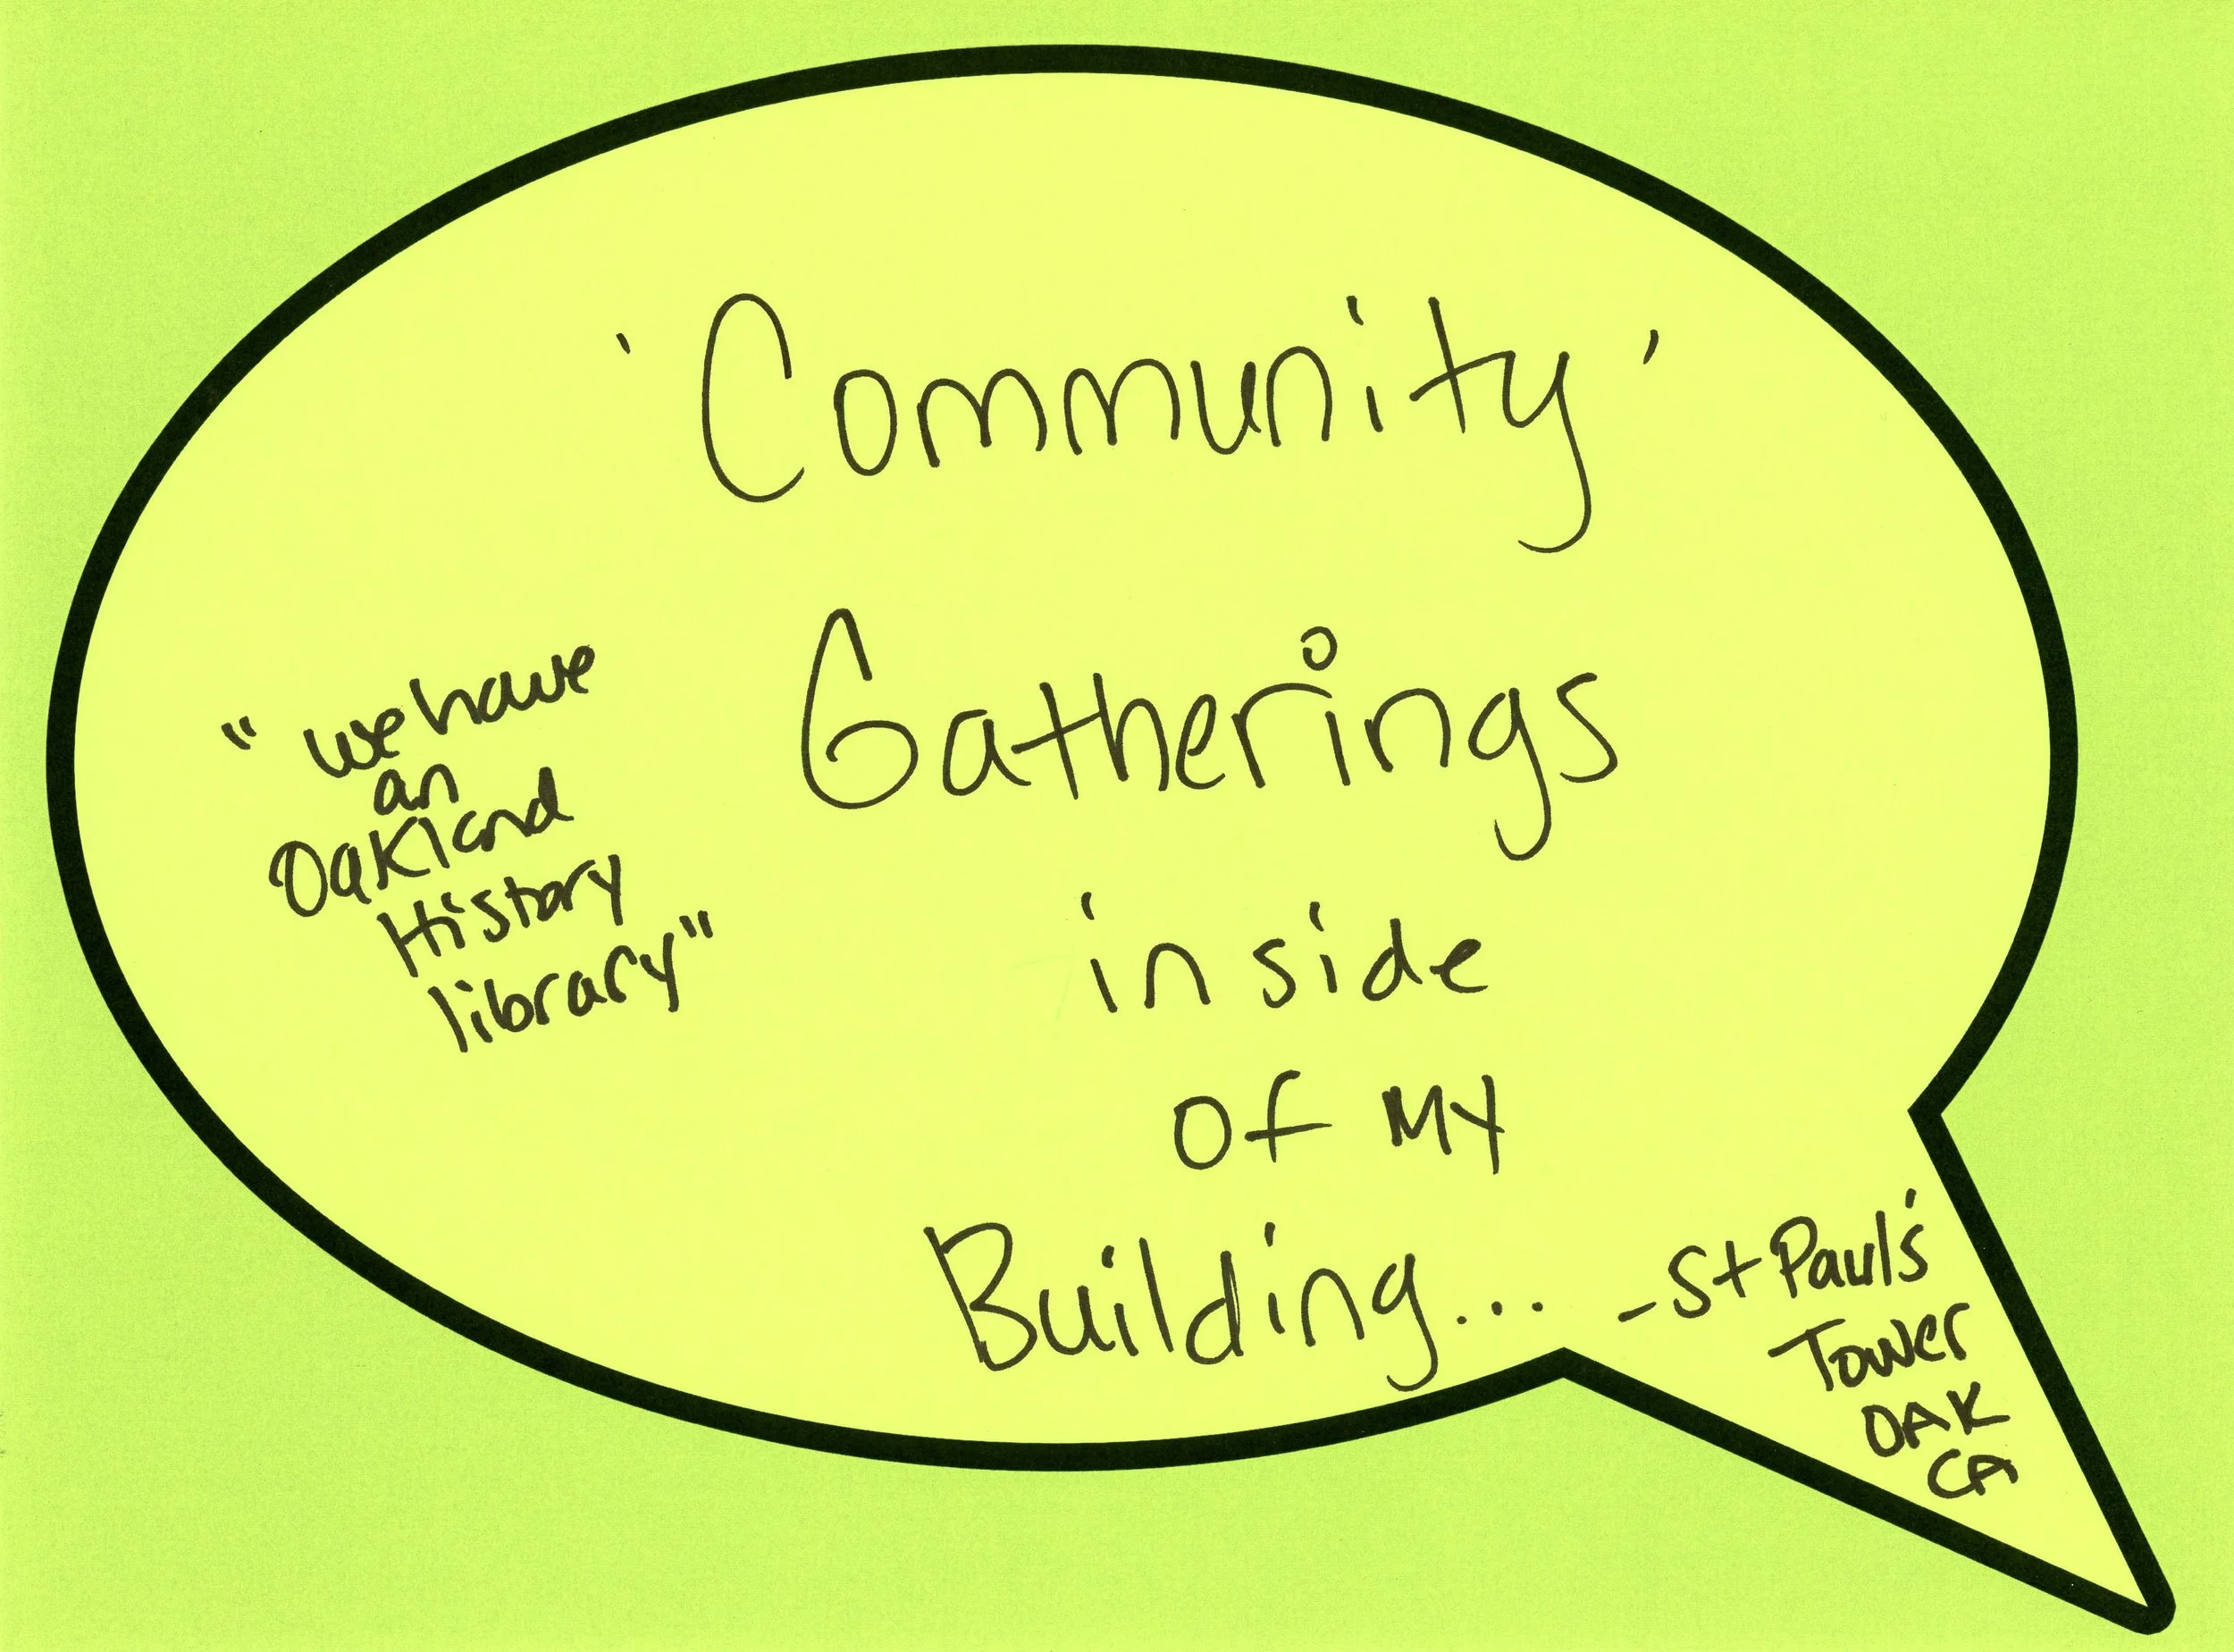 'Community'
Gatherings
inside
of MY
Building...
"we have
an
Oakland
History
library"
-St Paul's
Tower
OAK
CA